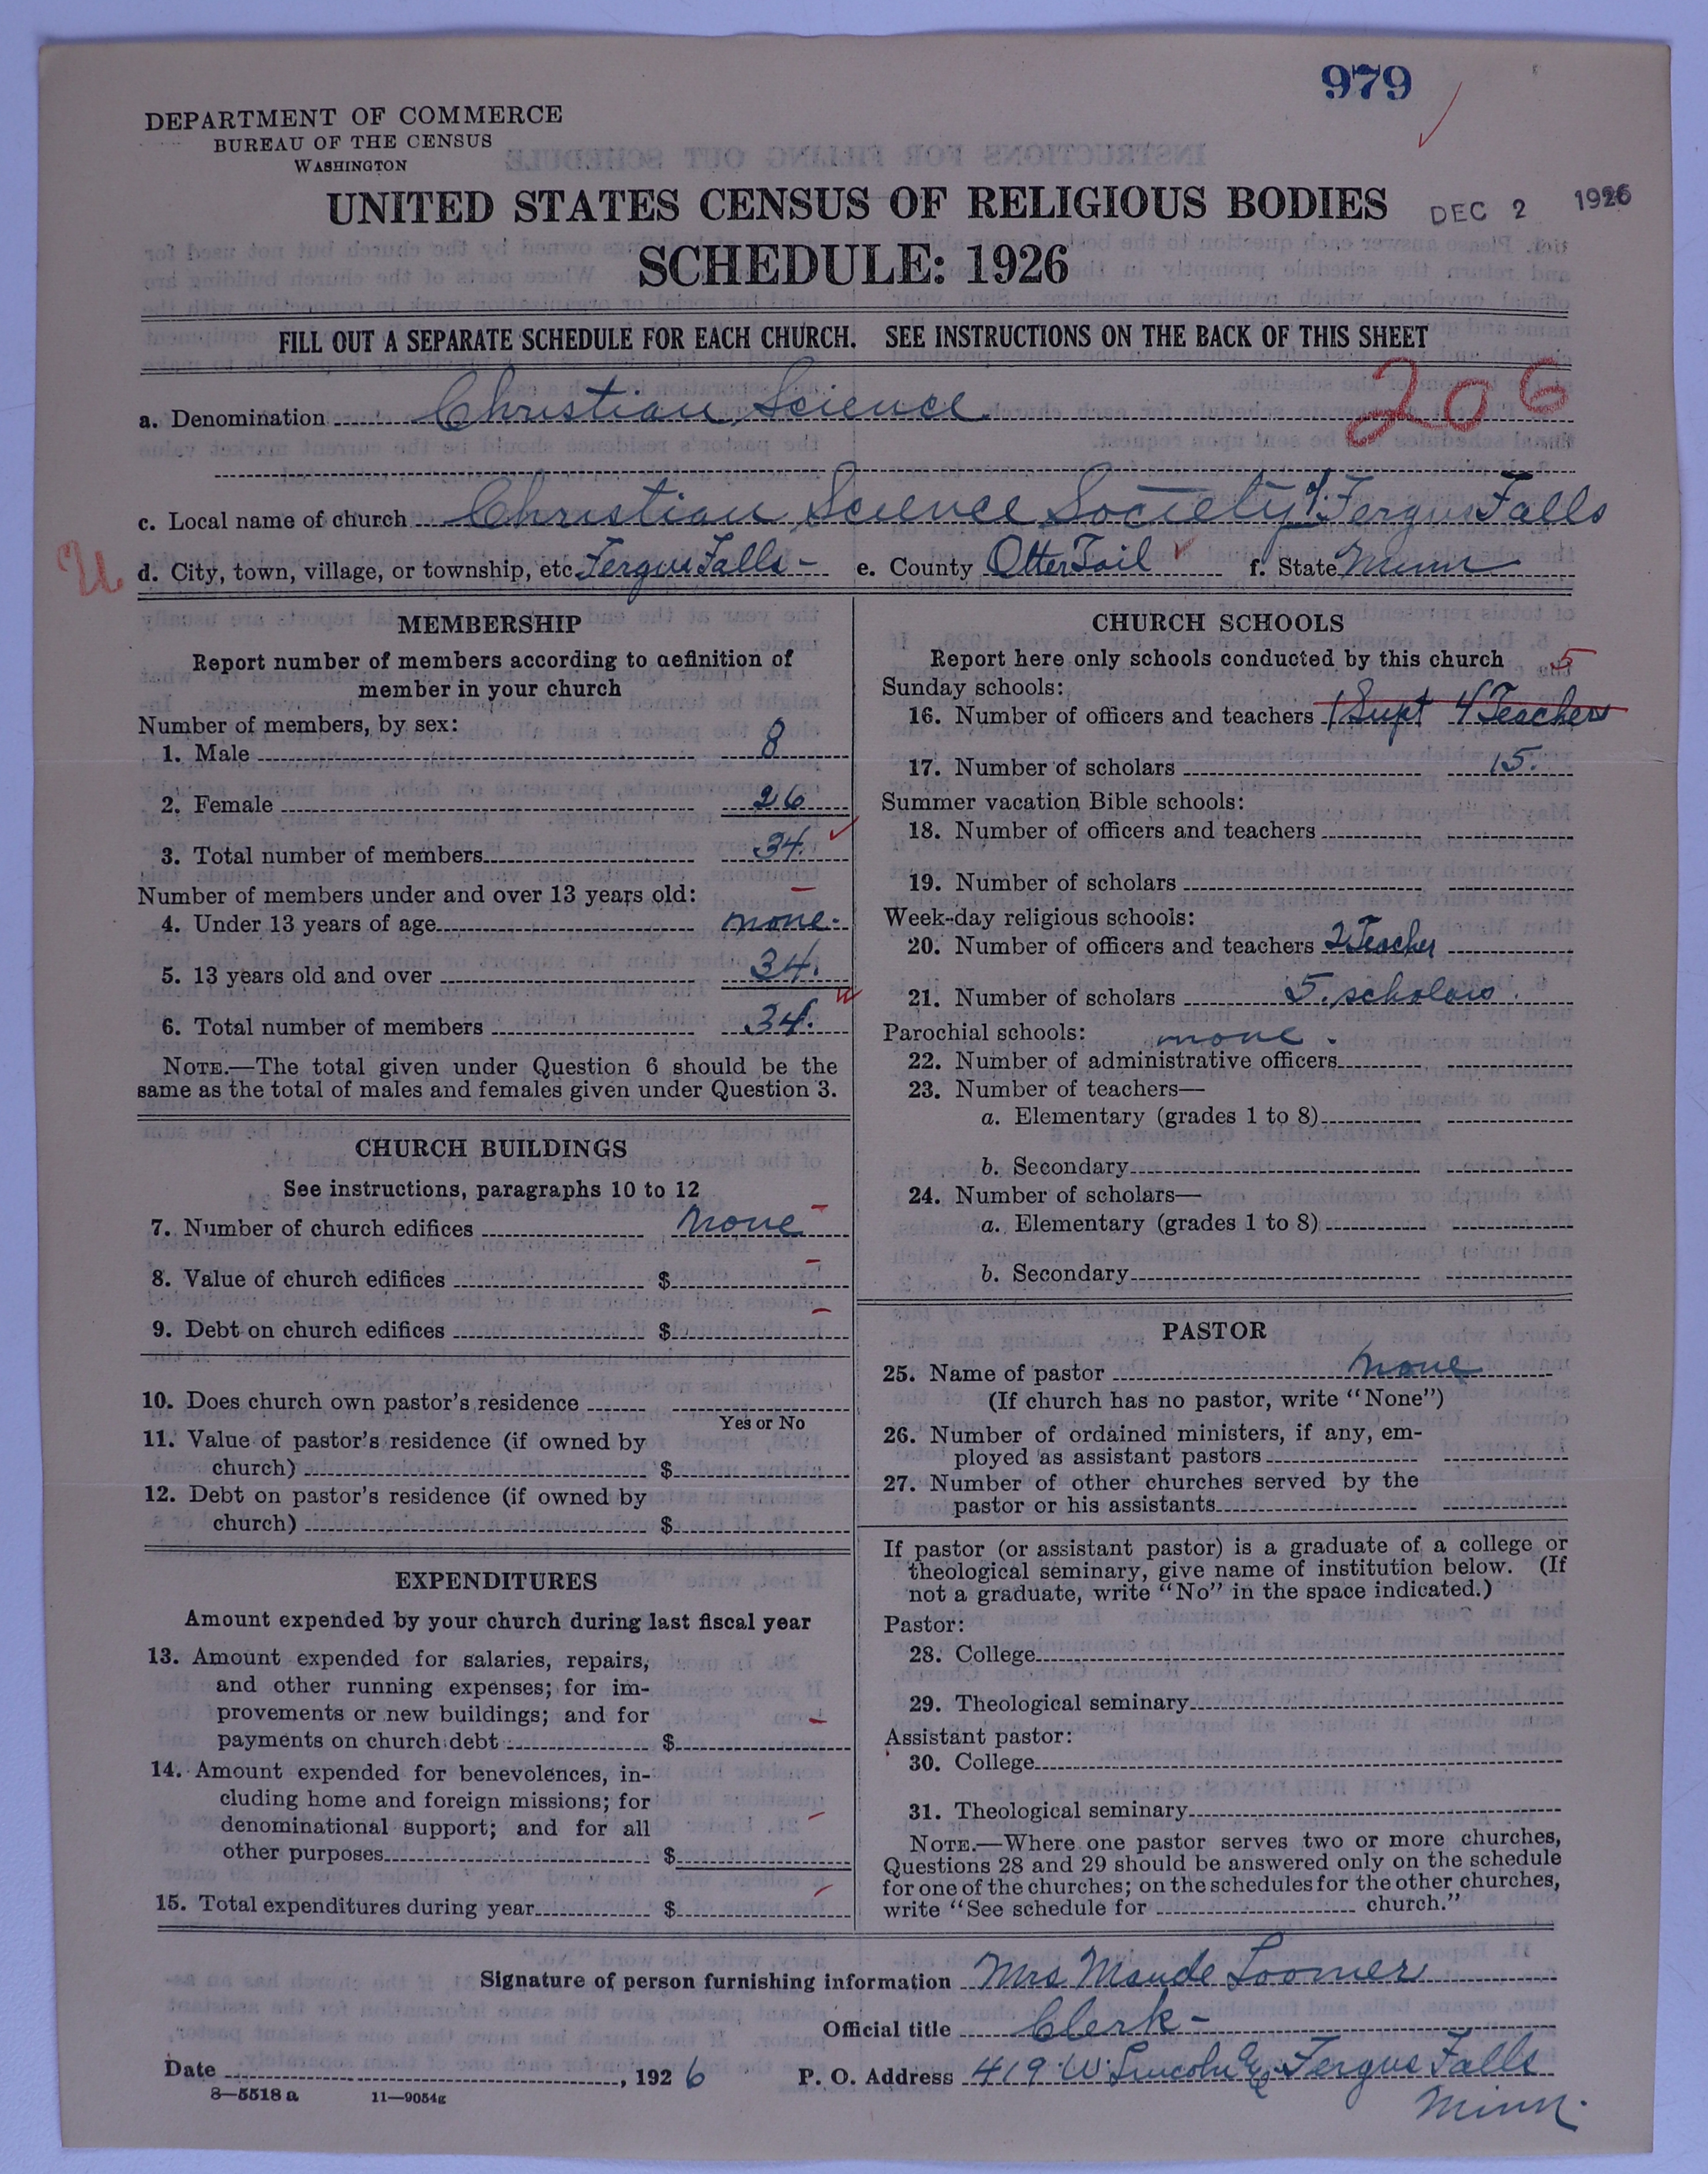 979
DEPARTMENT OF COMMERCE
BUREAU OF THE CENSUS
WASHINGTON
UNITED STATES CENSUS OF RELIGIOUS BODIES
DEC 2 1926
SCHEDULE: 1926
FILL OUT A SEPARATE SCHEDULE FOR EACH CHURCH. SEE INSTRUCTIONS ON THE BACK OF THIS SHEET
206
a. Denomination Christian Science
c. Local name of church Christian Science Society of Fergus Falls
U
d. City, town, village, or township, etc. Fergus Falls - e. County Otter Tail f. State Minn
MEMBERSHIP
Report number of members according to definition of
member in your church
Number of members, by sex:
1. Male 8
2. Female 26
3. Total number of members 34.
Number of members under and over 13 years old:
4. Under 13 years of age none.
5. 13 years old and over 34.
6. Total number of members 34.
NOTE.—The total given under Question 6 should be the
same as the total of males and females given under Question 3.
CHURCH BUILDINGS
See instructions, paragraphs 10 to 12
7. Number of church edifices none
8. Value of church edifices $
9. Debt on church edifices $
10. Does church own pastor's residence
Yes or No
11. Value of pastor's residence (if owned by
church) $
12. Debt on pastor's residence (if owned by
church) $
EXPENDITURES
Amount expended by your church during last fiscal year
13. Amount expended for salaries, repairs,
and other running expenses; for im-
provements or new buildings; and for
payments on church debt $
14. Amount expended for benevolences, in-
cluding home and foreign missions; for
denominational support; and for all
other purposes $
15. Total expenditures during year $
CHURCH SCHOOLS
Report here only schools conducted by this church 5
Sunday schools:
16. Number of officers and teachers 1 Supt 4 Teachers
17. Number of scholars 15.
Summer vacation Bible schools:
18. Number of officers and teachers
19. Number of scholars
Week-day religious schools:
20. Number of officers and teachers 2 Teacher
21. Number of scholars 5. scholars.
Parochial schools: none.
22. Number of administrative officers
23. Number of teachers—
a. Elementary (grades 1 to 8)
b. Secondary
24. Number of scholars—
a. Elementary (grades 1 to 8)
b. Secondary
PASTOR
25. Name of pastor none
(If church has no pastor, write "None")
26. Number of ordained ministers, if any, em-
ployed as assistant pastors
27. Number of other churches served by the
pastor or his assistants
If pastor (or assistant pastor) is a graduate of a college or
theological seminary, give name of institution below. (If
not a graduate, write "No" in the space indicated.)
Pastor:
28. College
29. Theological seminary
Assistant pastor:
30. College
31. Theological seminary
NOTE.—Where one pastor serves two or more churches,
Questions 28 and 29 should be answered only on the schedule
for one of the churches; on the schedules for the other churches,
write "See schedule for church."
Signature of person furnishing information Mrs Maude Loomer
Official title Clerk -
Date , 1926 P. O. Address 419 W. Lincoln Fergus Falls
Minn.
8—5518 a 11—9054g